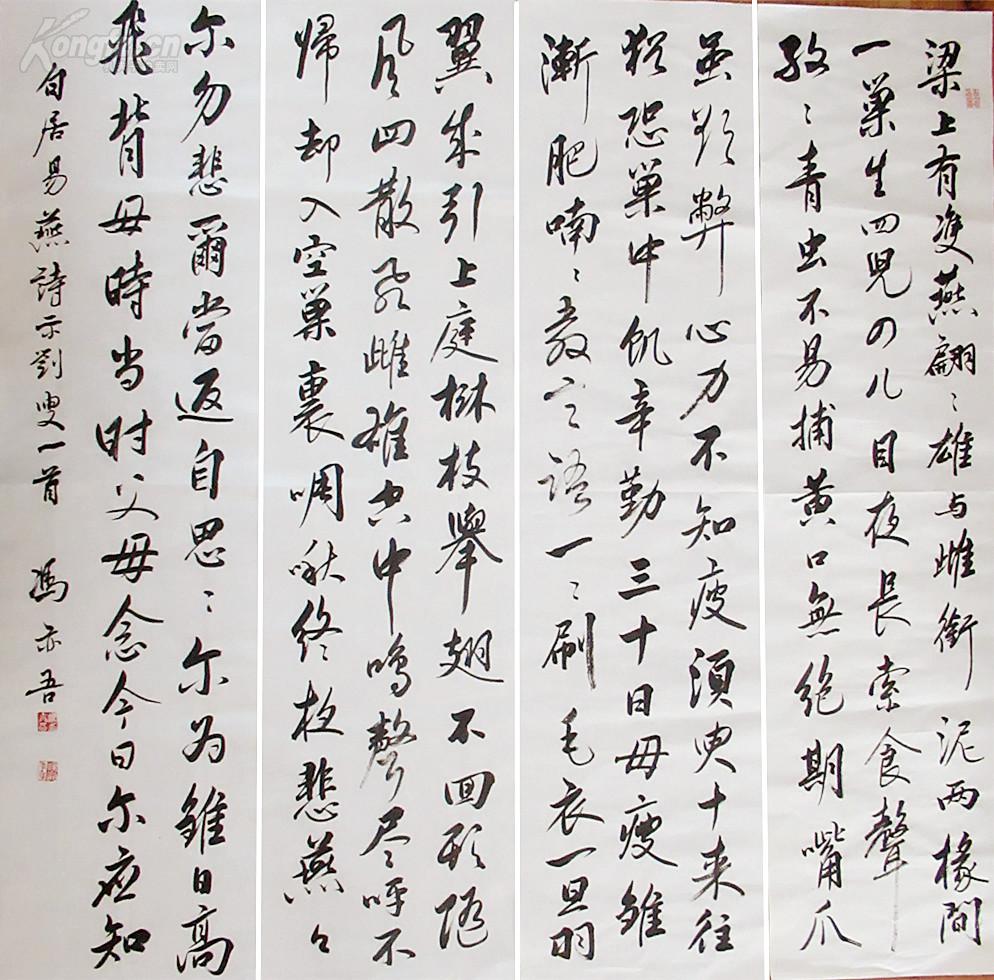 梁上有雙燕翩〻雄与雌銜泥两椽間
一巢生四兒四儿日夜長索食聲
孜〻青虫不易捕黄口無绝期嘴爪
虽欲弊心力不知疲须臾十来往
犹恐巢中饥辛勤三十日母瘦雏
漸肥喃〻教言語一〻刷毛衣一旦羽
翼成引上庭树枝舉翅不回顾随
风四散飞雌雄空中鳴聲尽呼不
帰却入空巢裏啁啾终夜悲燕〻
尔勿悲爾當返自思〻尔为雏日高
飛背母時当时父母念今日尔应知
白居易燕詩示劉叟一首 馮亦吾